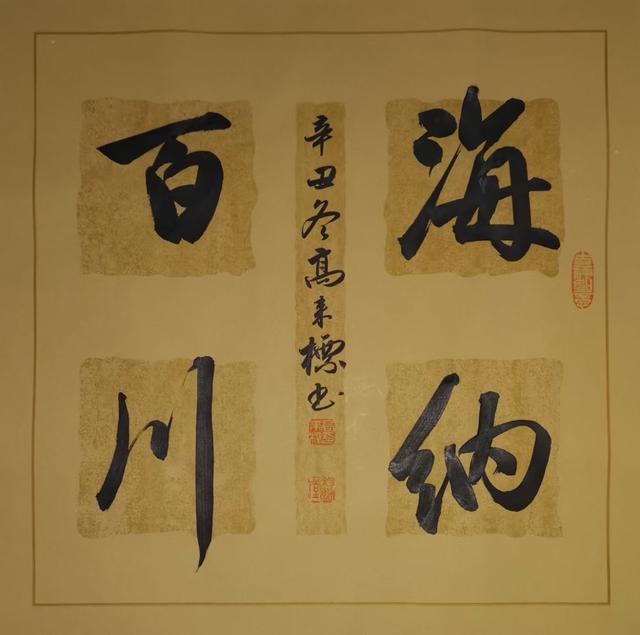 海纳
百川
辛丑冬高来標书